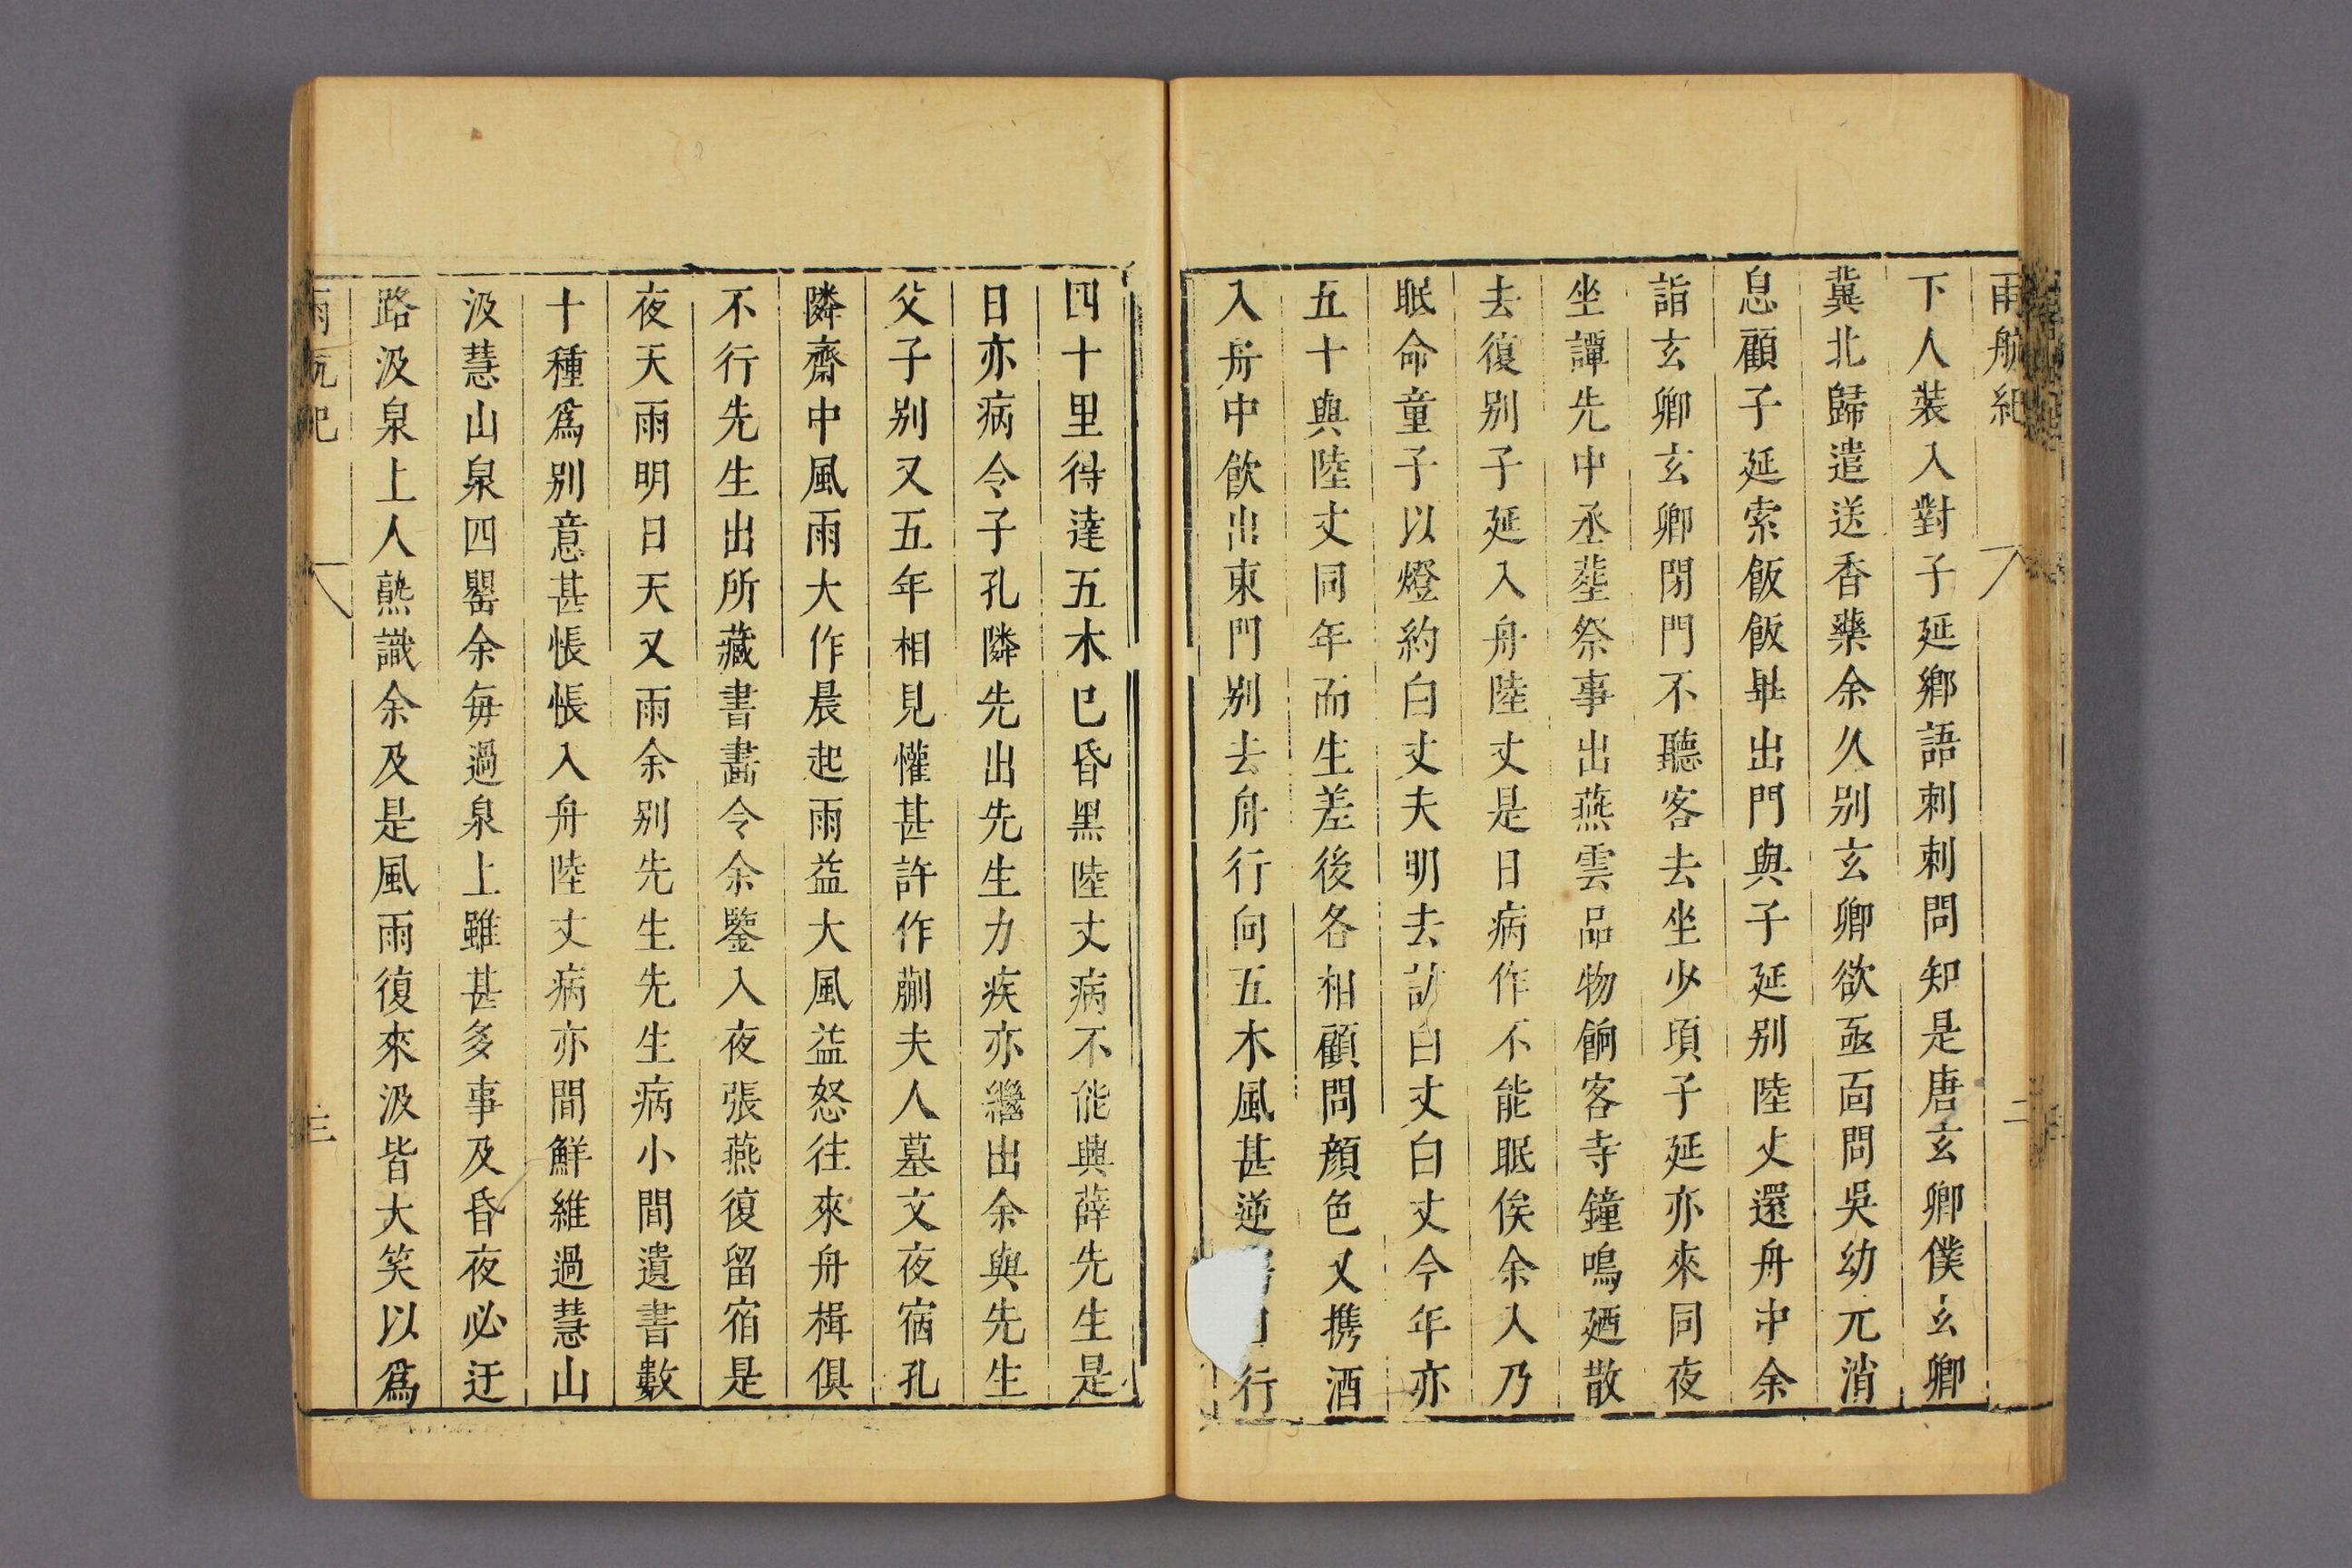 雨航紀
二
下人裝入對子延鄉語刺刺問知是唐玄卿僕玄卿
冀北歸遣送香藥余久别玄卿欲亟面問吳幼元消
息顧子延索飯飯畢出門與子延别陸丈還舟中余
詣玄卿玄卿閉門不聽客去坐少頃子延亦來同夜
坐譚先中丞塟祭事出燕雲品物餉客寺鐘鳴廼散
去復别子延入舟陸丈是日病作不能眠俟余入乃
眠命童子以燈約白丈夫明去訪白丈白丈今年亦
五十與陸丈同年而生差後各相顧問顔色又携酒
入舟中飲出東門别去舟行向五木風甚逆行
四十里待達五木已昏黑陸丈病不能興薛先生是
日亦病令子孔隣先出先生力疾亦繼出余與先生
父子别又五年相見懽甚許作蒯夫人墓文夜宿孔
隣齋中風雨大作晨起雨益大風益怒往來舟楫俱
不行先生出所藏書畵令余鑒入夜張燕復留宿是
夜天雨明日天又雨余别先生先生病小間遺書數
十種爲别意甚悵悵入舟陸丈病亦間鮮維過慧山
汲慧山泉四罌余每過泉上雖甚多事及昏夜必迂
路汲泉上人熟識余及是風雨復來汲皆大笑以爲
雨航紀
三